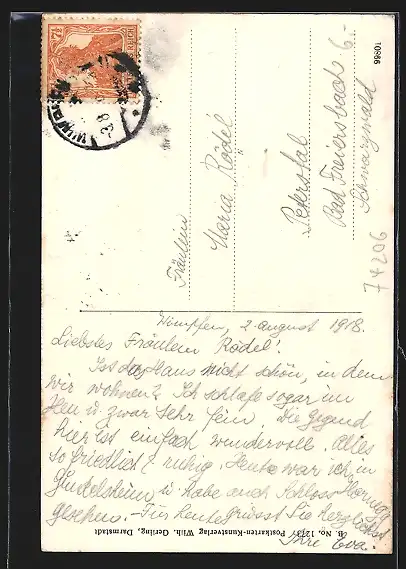 Fräulein
Maria Rödel
Peterstal
Bad Freiersbach 6-
Schwarzwald
10866
74206
Wimpfen, 2. august 1918.
Liebstes Fräulein Rödel!
Ist das Haus nicht schön, in dem
wir wohnen? Ich schlafe sogar im
Heu u. zwar sehr fein. Die Gegend
hier ist einfach wundervoll. Alles
so friedlich & ruhig. Heute war ich in
Gundelsheim u. habe auch Schloss Hornegg
gesehen. – Für heute grüsst Sie herzlichst
Ihre Eva.
B. No. 1273 Postkarten-Kunstverlag Wilh. Gerling, Darmstadt